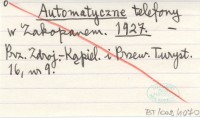 Automatyczne telefony
w Zakopanem. 1927. –
Prz. Zdroj.-Kąpiel. i Przew. Turyst.
16, nr 9.